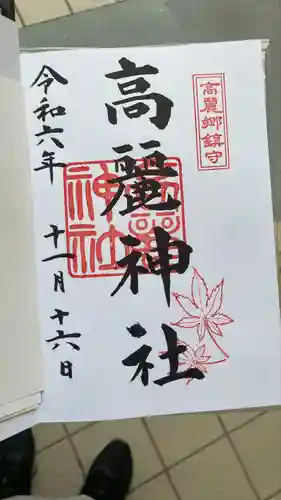 高麗郷鎮守
高麗神社
高麗神社
令和六年 十一月十六日